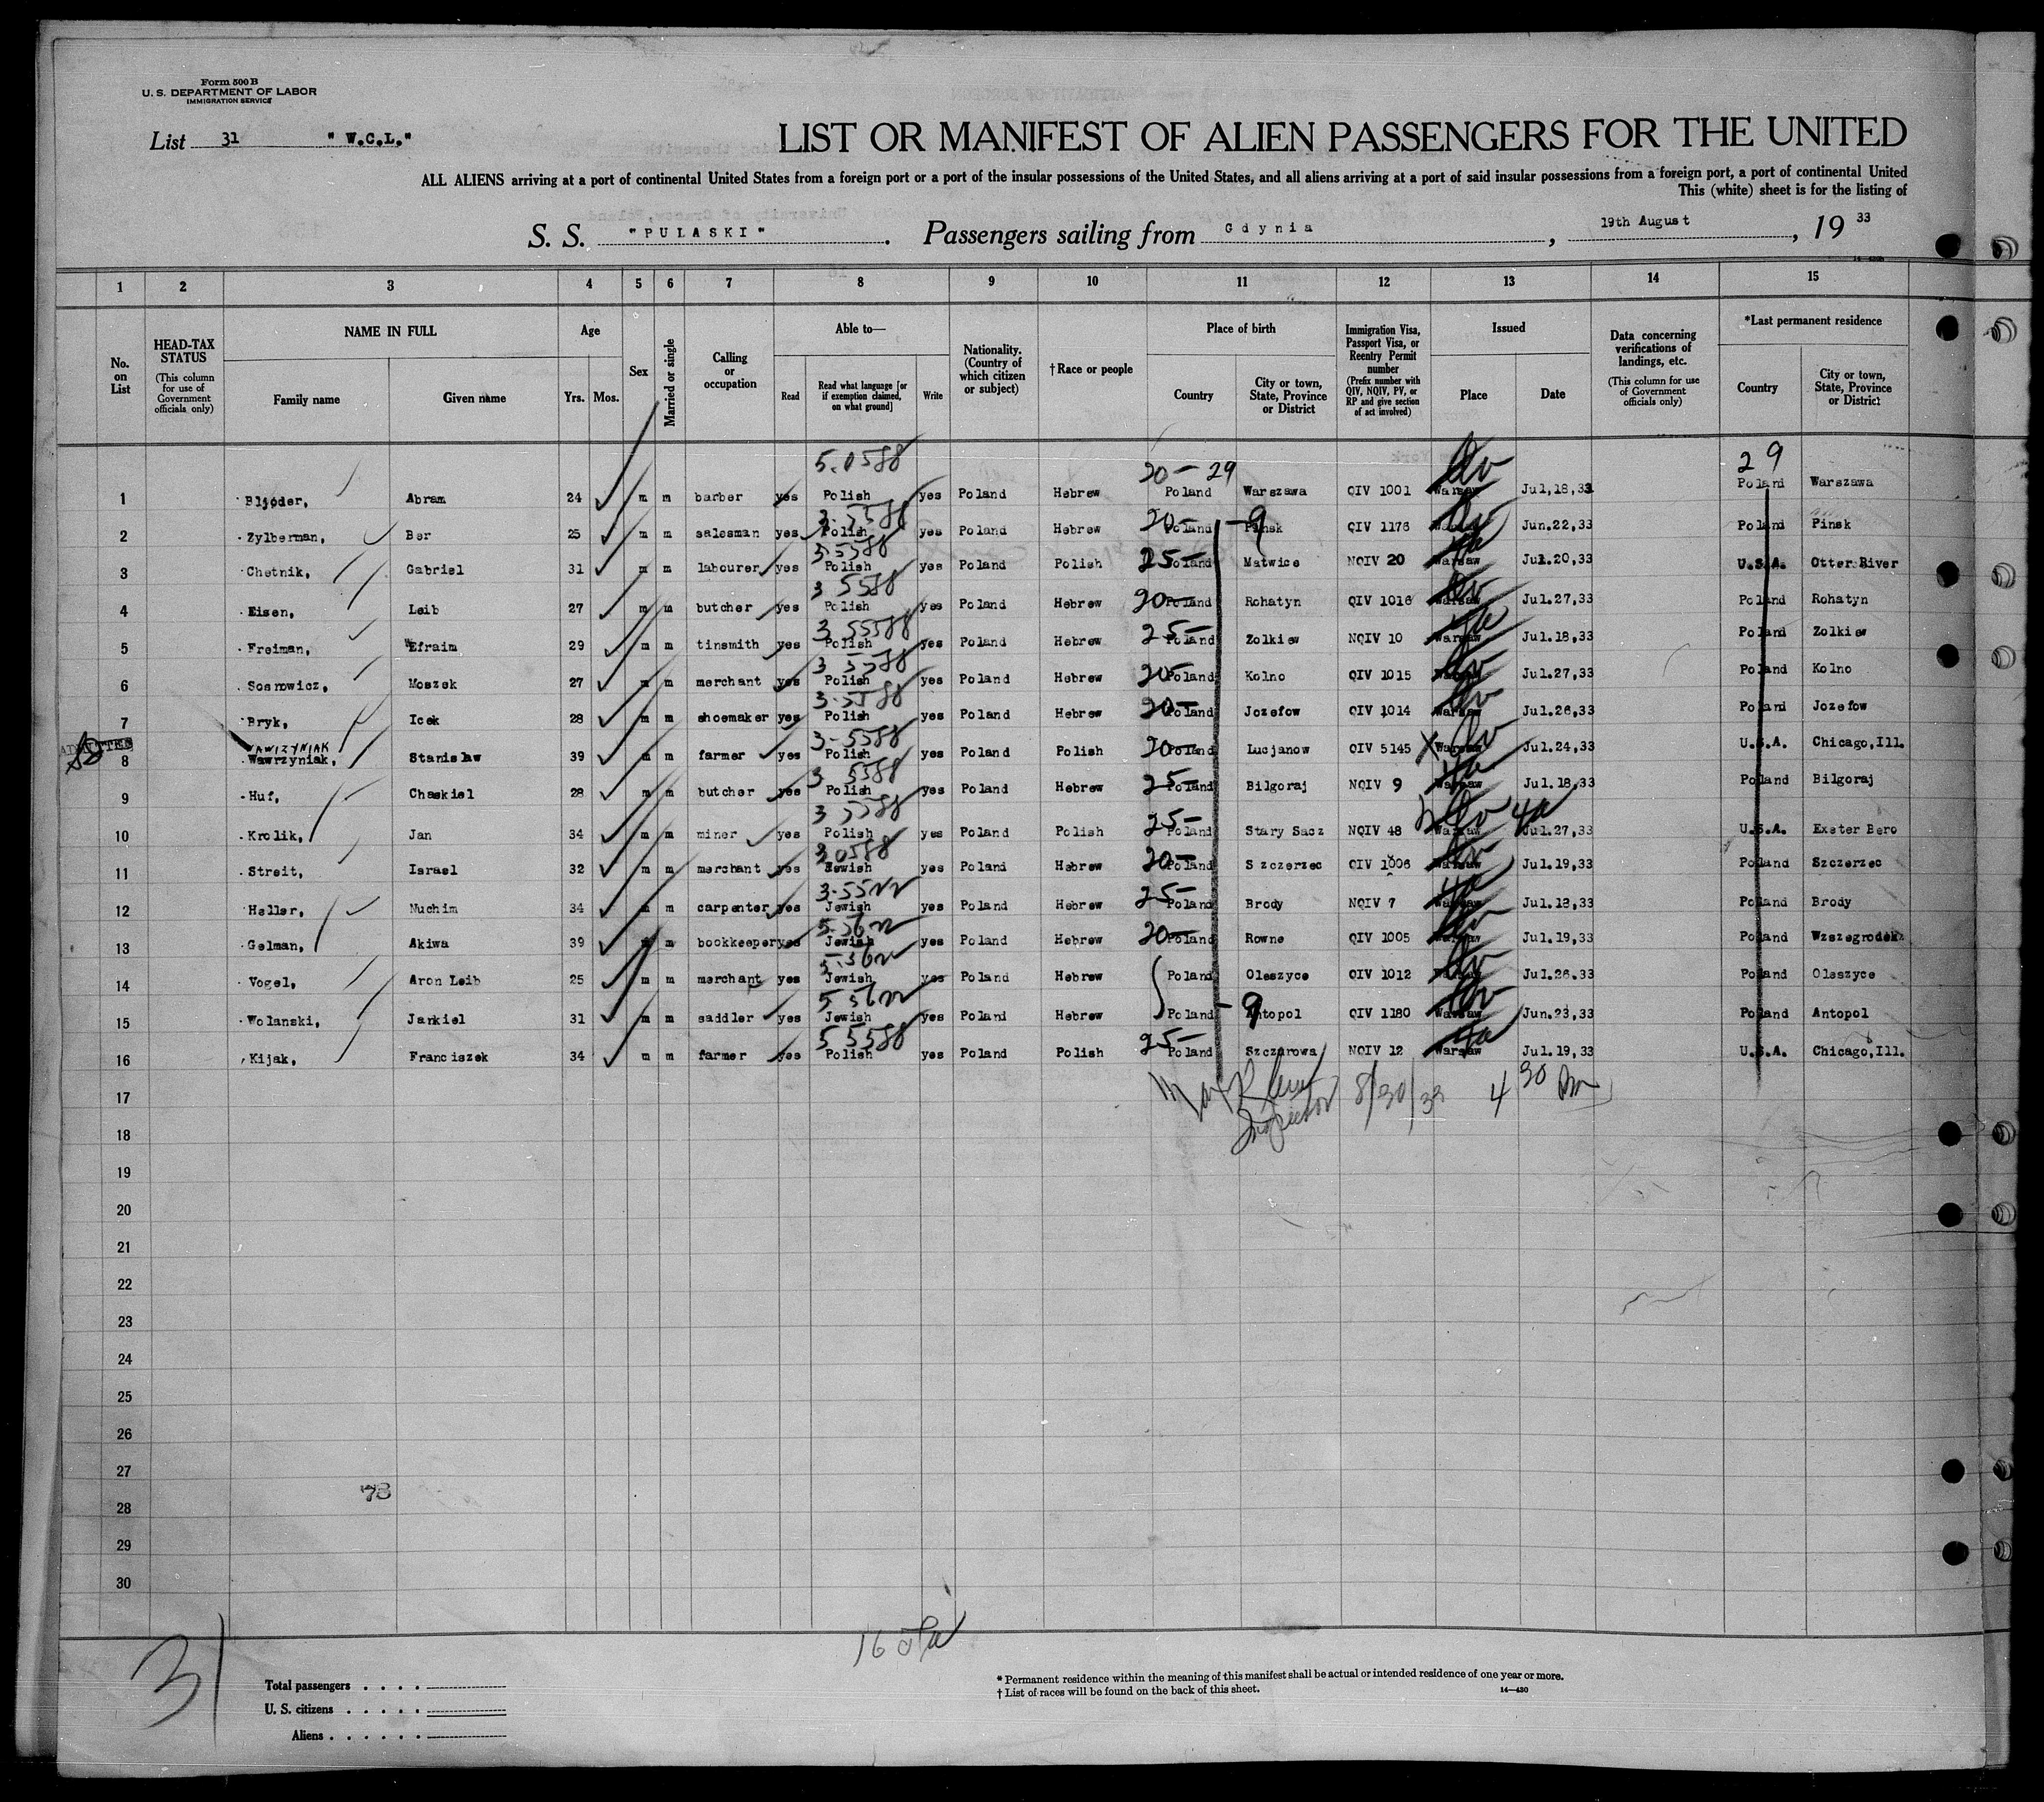 Form 500 B
U. S. DEPARTMENT OF LABOR
IMMIGRATION SERVICE
List 31 "W.C.L."
LIST OR MANIFEST OF ALIEN PASSENGERS FOR THE UNITED
ALL ALIENS arriving at a port of continental United States from a foreign port or a port of the insular possessions of the United States, and all aliens arriving at a port of said insular possessions from a foreign port, a port of continental United
This (white) sheet is for the listing of
S. S. "PULASKI" . Passengers sailing from Gdynia , 19th August , 19 33
1 2 3 4 5 6 7 8 9 10 11 12 13 14 15
No. on List
HEAD-TAX STATUS
(This column for use of Government officials only)
NAME IN FULL
Family name Given name
Age
Yrs. Mos.
Sex
Married or single
Calling or occupation
Able to—
Read
Read what language [or if exemption claimed, on what ground]
Write
Nationality. (Country of which citizen or subject)
† Race or people
Place of birth
Country
City or town, State, Province or District
Immigration Visa, Passport Visa, or Reentry Permit number
(Prefix number with QIV, NQIV, PV, or RP and give section of act involved)
Issued
Place Date
Data concerning verifications of landings, etc.
(This column for use of Government officials only)
*Last permanent residence
Country
City or town, State, Province or District
20- 29 29
1 Bljoder, Abram 24 m m barber yes Polish yes Poland Hebrew Poland Warszawa QIV 1001 Warsaw Jul,18,33 Poland Warszawa
2 Zylberman, Ber 25 m m salesman yes Polish yes Poland Hebrew Poland Pinsk QIV 1176 Warsaw Jun.22,33 Poland Pinsk
3 Chetnik, Gabriel 31 m m labourer yes Polish yes Poland Polish Poland Matwice NQIV 20 Warsaw Jul.20,33 U.S.A. Otter River
4 Eisen, Leib 27 m m butcher yes Polish yes Poland Hebrew Poland Rohatyn QIV 1016 Warsaw Jul.27,33 Poland Rohatyn
5 Freiman, Efraim 29 m m tinsmith yes Polish yes Poland Hebrew Poland Zolkiew NQIV 10 Warsaw Jul.18,33 Poland Zolkiew
6 Sosnowicz, Moszek 27 m m merchant yes Polish yes Poland Hebrew Poland Kolno QIV 1015 Warsaw Jul.27,33 Poland Kolno
7 Bryk, Icek 28 m m shoemaker yes Polish yes Poland Hebrew Poland Jozefow QIV 1014 Warsaw Jul.26,33 Poland Jozefow
ADMITTED WAWIZYNIAK
8 Wawrzyniak, Stanislaw 39 m m farmer yes Polish yes Poland Polish Poland Lucjanow QIV 5145 Warsaw Jul.24,33 U.S.A. Chicago,Ill.
9 Huf, Chaskiel 28 m m butcher yes Polish yes Poland Hebrew Poland Bilgoraj NQIV 9 Warsaw Jul.18,33 Poland Bilgoraj
10 Krolik, Jan 34 m m miner yes Polish yes Poland Polish Poland Stary Sacz NQIV 48 Warsaw Jul.27,33 U.S.A. Exeter Boro
11 Streit, Israel 32 m m merchant yes Jewish yes Poland Hebrew Poland Szczerzec QIV 1006 Warsaw Jul.19,33 Poland Szczerzec
12 Heller, Nuchim 34 m m carpenter yes Jewish yes Poland Hebrew Poland Brody NQIV 7 Warsaw Jul.18,33 Poland Brody
13 Gelman, Akiwa 39 m m bookkeeper yes Jewish yes Poland Hebrew Poland Rowne QIV 1005 Warsaw Jul.19,33 Poland Wzszegrodek
14 Vogel, Aron Leib 25 m m merchant yes Jewish yes Poland Hebrew Poland Oleszyce QIV 1012 Warsaw Jul.26.33 Poland Oleszyce
15 Wolanski, Jankiel 31 m m saddler yes Jewish yes Poland Hebrew Poland Antopol QIV 1180 Warsaw Jun.23,33 Poland Antopol
16 Kijak, Franciszek 34 m m farmer yes Polish yes Poland Polish Poland Szczurowa NQIV 12 Warsaw Jul.19,33 U.S.A. Chicago,Ill.
17 Inspector 8/30/33 4 30 Pm
18
19
20
21
22
23
24
25
26
27
78
28
29
30
31
16
Total passengers
U. S. citizens
Aliens
* Permanent residence within the meaning of this manifest shall be actual or intended residence of one year or more.
† List of races will be found on the back of this sheet.
14—430